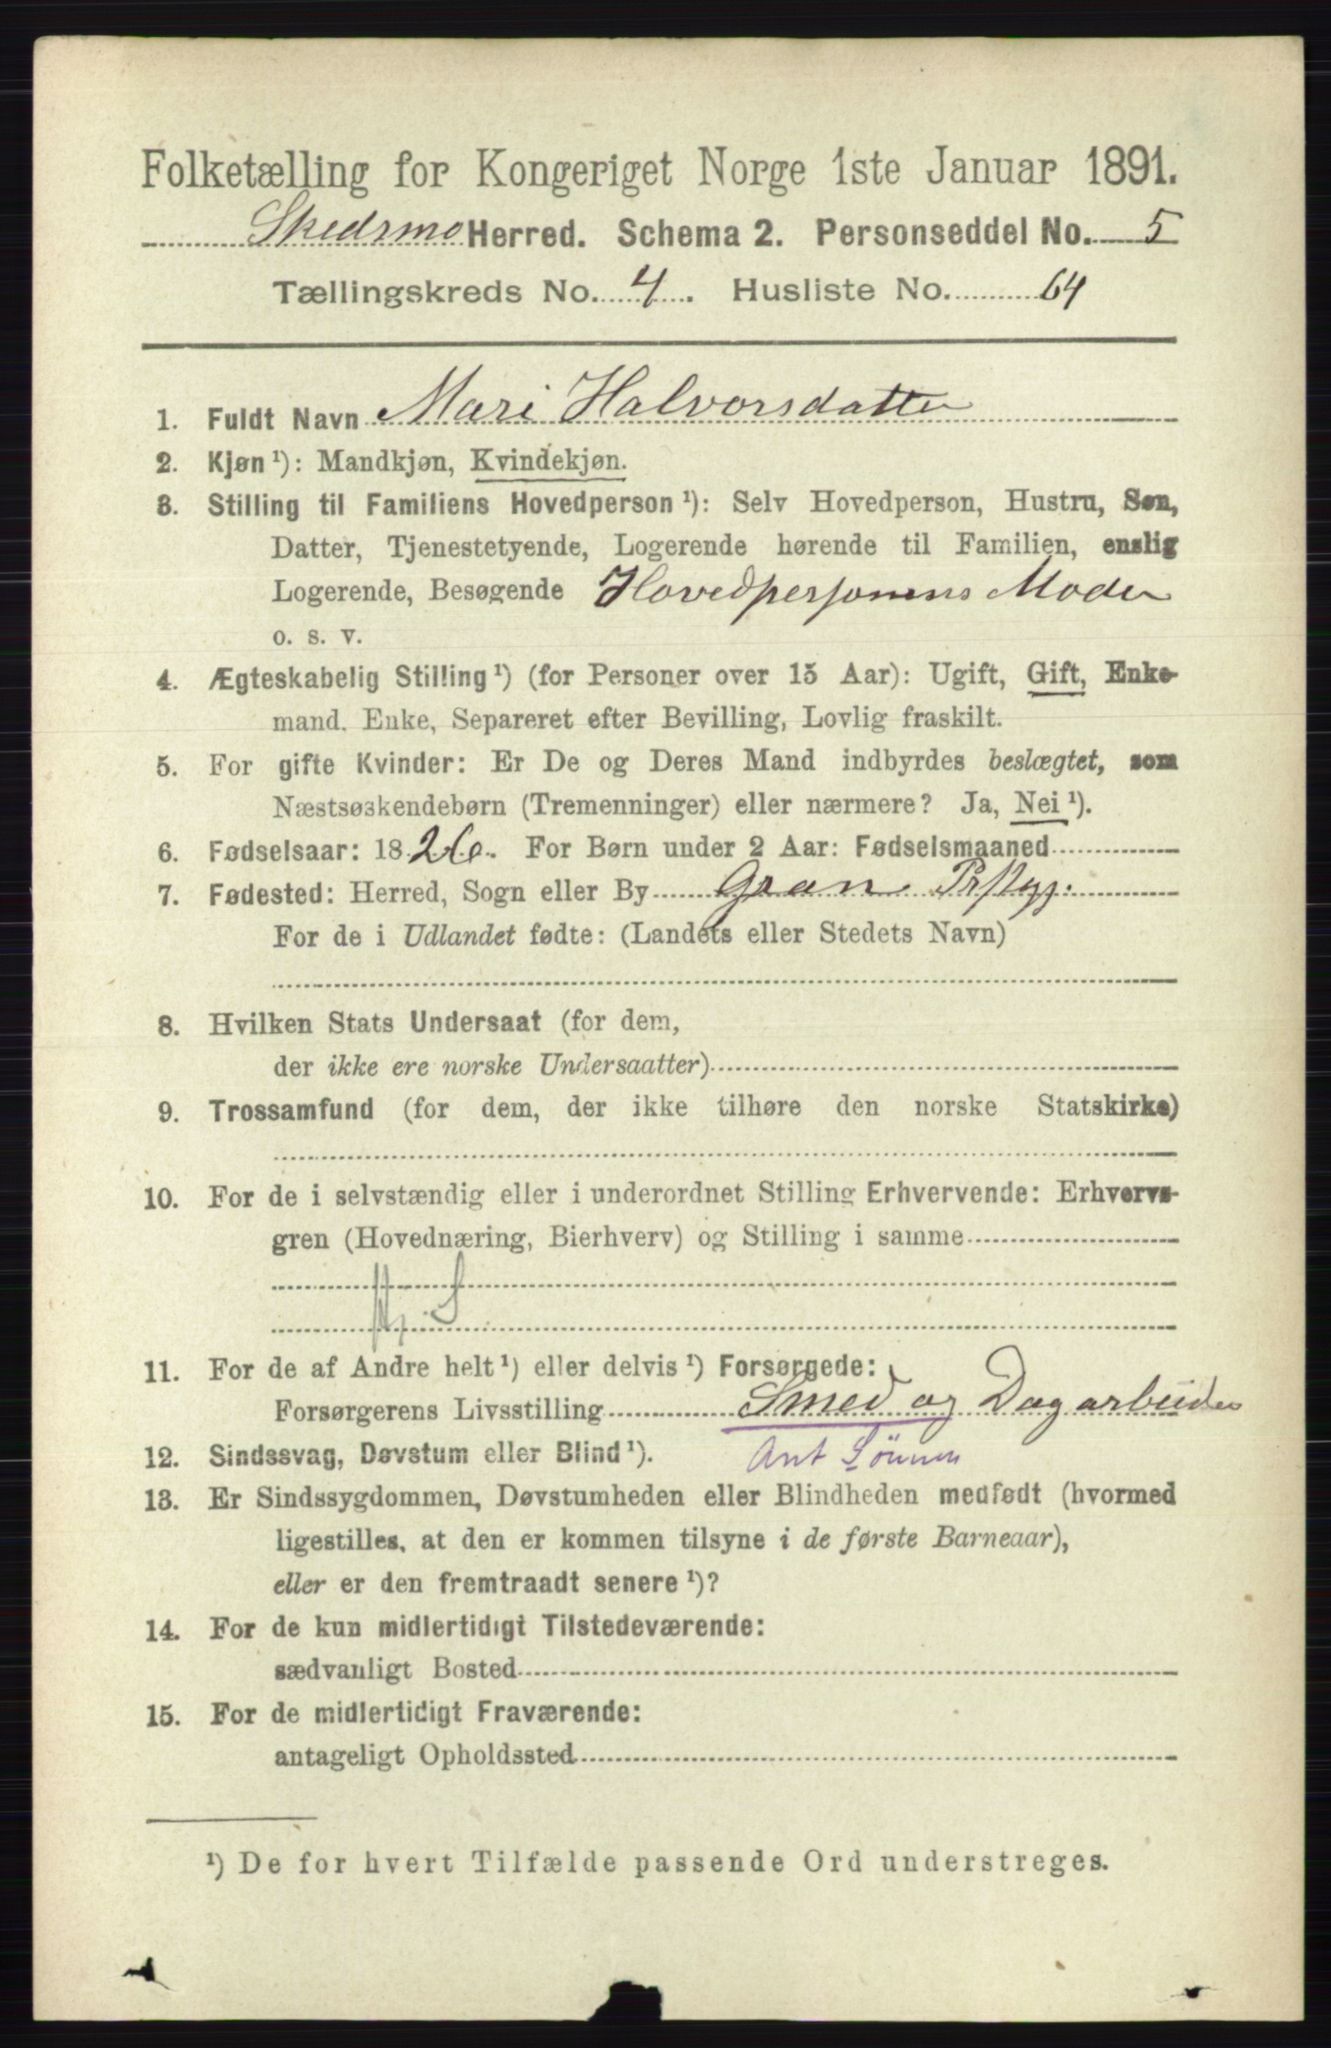 Folketælling for Kongeriget Norge 1ste Januar 1891.
Skedsmo Herred. Schema 2. Personseddel No. 5
Tællingskreds No. 4. Husliste No. 64
1. Fuldt Navn Mari Halvorsdatter
2. Kjøn ¹): Mandkjøn, Kvindekjøn.
3. Stilling til Familiens Hovedperson ¹): Selv Hovedperson, Hustru, Søn,
Datter, Tjenestetyende, Logerende hørende til Familien, enslig
Logerende, Besøgende Hovedpersonens Moder
o. s. v.
4. Ægteskabelig Stilling ¹) (for Personer over 15 Aar): Ugift, Gift, Enke-
mand. Enke, Separeret efter Bevilling, Lovlig fraskilt.
5. For gifte Kvinder: Er De og Deres Mand indbyrdes beslægtet, som
Næstsøskendebørn (Tremenninger) eller nærmere? Ja, Nei ¹).
6. Fødselsaar: 1826. For Børn under 2 Aar: Fødselsmaaned
7. Fødested: Herred, Sogn eller By Gran Prstgj.
For de i Udlandet fødte: (Landets eller Stedets Navn)
8. Hvilken Stats Undersaat (for dem,
der ikke ere norske Undersaatter)
9. Trossamfund (for dem, der ikke tilhøre den norske Statskirke)
10. For de i selvstændig eller i underordnet Stilling Erhvervende: Erhvervs-
gren (Hovednæring, Bierhverv) og Stilling i samme
11. For de af Andre helt ¹) eller delvis ¹) Forsørgede:
Forsørgerens Livsstilling Smed og Dagarbeider
12. Sindssvag, Døvstum eller Blind ¹).
13. Er Sindssygdommen, Døvstumheden eller Blindheden medfødt (hvormed
ligestilles, at den er kommen tilsyne i de første Barneaar),
eller er den fremtraadt senere ¹)?
14. For de kun midlertidigt Tilstedeværende:
sædvanligt Bosted
15. For de midlertidigt Fraværende:
antageligt Opholdssted
¹) De for hvert Tilfælde passende Ord understreges.